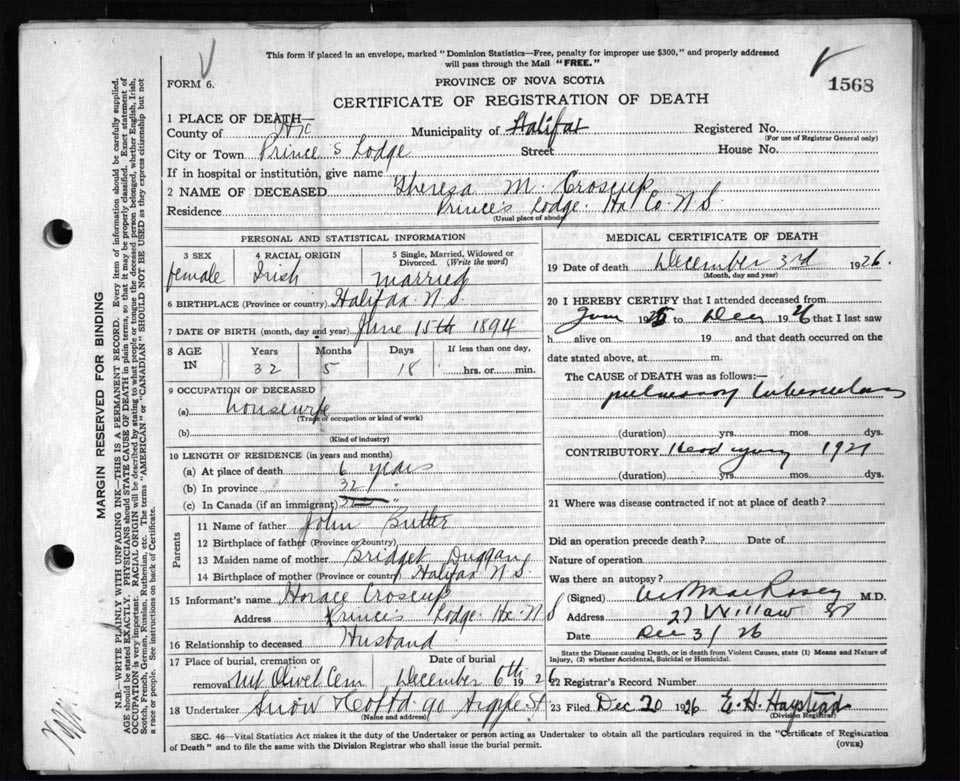 This form if placed in an envelope, marked "Dominion Statistics—Free, penalty for improper use $300," and properly addressed
will pass through the Mail "FREE."
FORM 6.
PROVINCE OF NOVA SCOTIA
1568
CERTIFICATE OF REGISTRATION OF DEATH
1 PLACE OF DEATH—
County of Hx Municipality of Halifax Registered No.
(For use of Registrar General only)
City or Town Prince's Lodge Street House No.
If in hospital or institution, give name
2 NAME OF DECEASED Theresa M. Croscup
Residence Prince's Lodge. Hx Co. N S.
(Usual place of abode)
PERSONAL AND STATISTICAL INFORMATION
3 SEX 4 RACIAL ORIGIN 5 Single, Married, Widowed or
Divorced. (Write the word)
female Irish married
6 BIRTHPLACE (Province or country) Halifax N.S.
7 DATE OF BIRTH (month, day and year) June 15th 1894
8 AGE IN Years Months Days If less than one day,
32 5 18 hrs. or min.
9 OCCUPATION OF DECEASED
(a) housewife
(Trade or occupation or kind of work)
(b)
(Kind of industry)
10 LENGTH OF RESIDENCE (in years and months)
(a) At place of death 6 years
(b) In province 32 "
(c) In Canada (if an immigrant) 32 "
Parents
11 Name of father John Butler
12 Birthplace of father (Province or country)
13 Maiden name of mother Bridget Duggan
14 Birthplace of mother (Province or country) Halifax N.S.
15 Informant's name Horace Croscup
Address Prince's Lodge. Hx. N S
16 Relationship to deceased Husband
17 Place of burial, cremation or Date of burial
removal Mt Olivet Cem December 6th 1926
18 Undertaker Snow & Co Ltd. 90 Argyle St
(Name and address)
MEDICAL CERTIFICATE OF DEATH
19 Date of death December 3rd 1926.
(Month, day and year)
20 I HEREBY CERTIFY that I attended deceased from
1925 to Dec 1926 that I last saw
h alive on 19 and that death occurred on the
date stated above, at m.
The CAUSE OF DEATH was as follows:—
pulmonary tuberculosis
(duration) yrs. mos. dys.
CONTRIBUTORY
(duration) yrs. mos. dys.
21 Where was disease contracted if not at place of death?
Did an operation precede death? Date of
Nature of operation
Was there an autopsy?
(Signed) M.D.
Address 27 Willow St
Date Dec 3/26
State the Disease causing Death, or in death from Violent Causes, state (1) Means and Nature of
Injury, (2) whether Accidental, Suicidal or Homicidal.
22 Registrar's Record Number
23 Filed Dec 20 1926 E. H. Haystead
(Division Registrar)
SEC. 46—Vital Statistics Act makes it the duty of the Undertaker or person acting as Undertaker to obtain all the particulars required in the "Certificate of Registration
of Death" and to file the same with the Division Registrar who shall issue the burial permit.
(OVER)
MARGIN RESERVED FOR BINDING
N.B.—WRITE PLAINLY WITH UNFADING INK—THIS IS A PERMANENT RECORD. Every item of information should be carefully supplied.
AGE should be stated EXACTLY. PHYSICIANS should STATE CAUSE OF DEATH in plain terms, so that it may be properly classified. Exact statement of
OCCUPATION is very important. RACIAL ORIGIN will be described by stating to what people or tongue the deceased person belonged, whether English, Irish,
Scotch, French, German, Russian, Ruthenian, etc. The terms "AMERICAN" or "CANADIAN" SHOULD NOT BE USED as they express citizenship but not
a race or people. See instructions on back of Certificate.